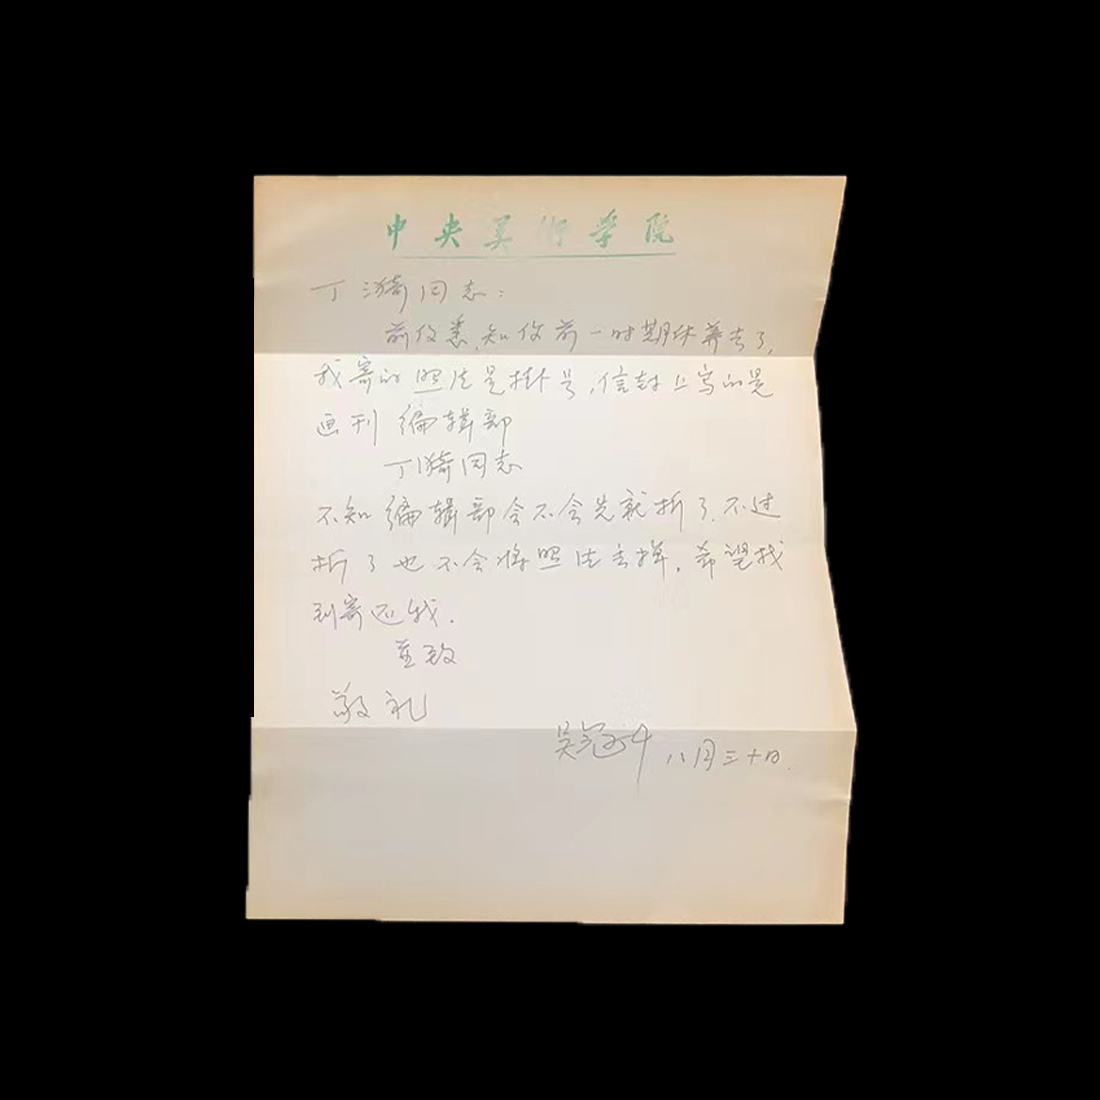 中央美術学院
丁漪同志：
前信悉，知你前一时期休养去了，
我寄的照片是掛号，信封上写的是
画刊 编辑部
丁漪同志
不知编辑部会不会先就拆了，不过
拆了也不会将照片丢掉，希望找
到寄还我。
并致
敬礼
吴冠中 八月三十日.